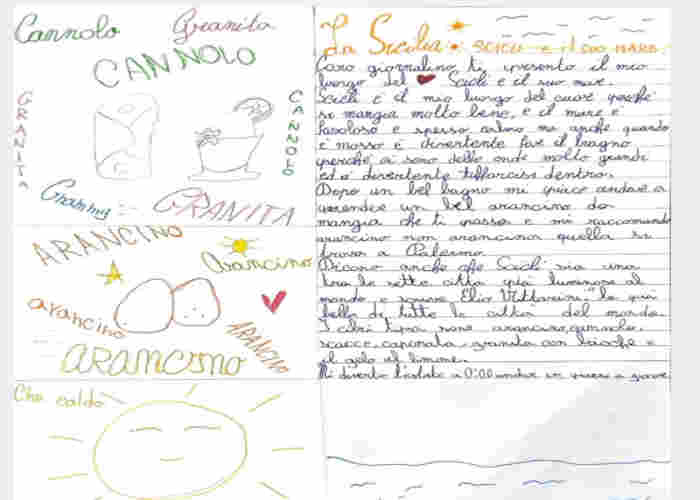 Cannolo
Granita
CANNOLO
GRANITA
CANNOLO
GRANITA
ARANCINO
Arancino
arancino
ARANCINO
arancino
Che caldo
La Sicilia: SCICLI e il suo MARE
Caro giornalino ti presento il mio
luogo del Scicli e il suo mare.
Scicli è il mio luogo del cuore perché
si mangia molto bene, e il mare è
favoloso e spesso calmo ma anche quando
è mosso è divertente fare il bagno
perché ci sono delle onde molto grandi
ed è divertente tuffarcisi dentro.
Dopo un bel bagno mi piace andare a
prendere un bel arancino da
mangia che ti passa e mi raccomando
arancino non arancina quella si
trova a Palermo.
Dicono anche che Scicli sia una
tra le sette città più luminose al
mondo e scrisse Elio Vittorini: "la più
bella di tutte le città del mondo.
I cibi tipici sono arancino, cannolo,
scacce, caponata, granita con brioche e
il gelo al limone.
Mi diverto l'estate a andare in a